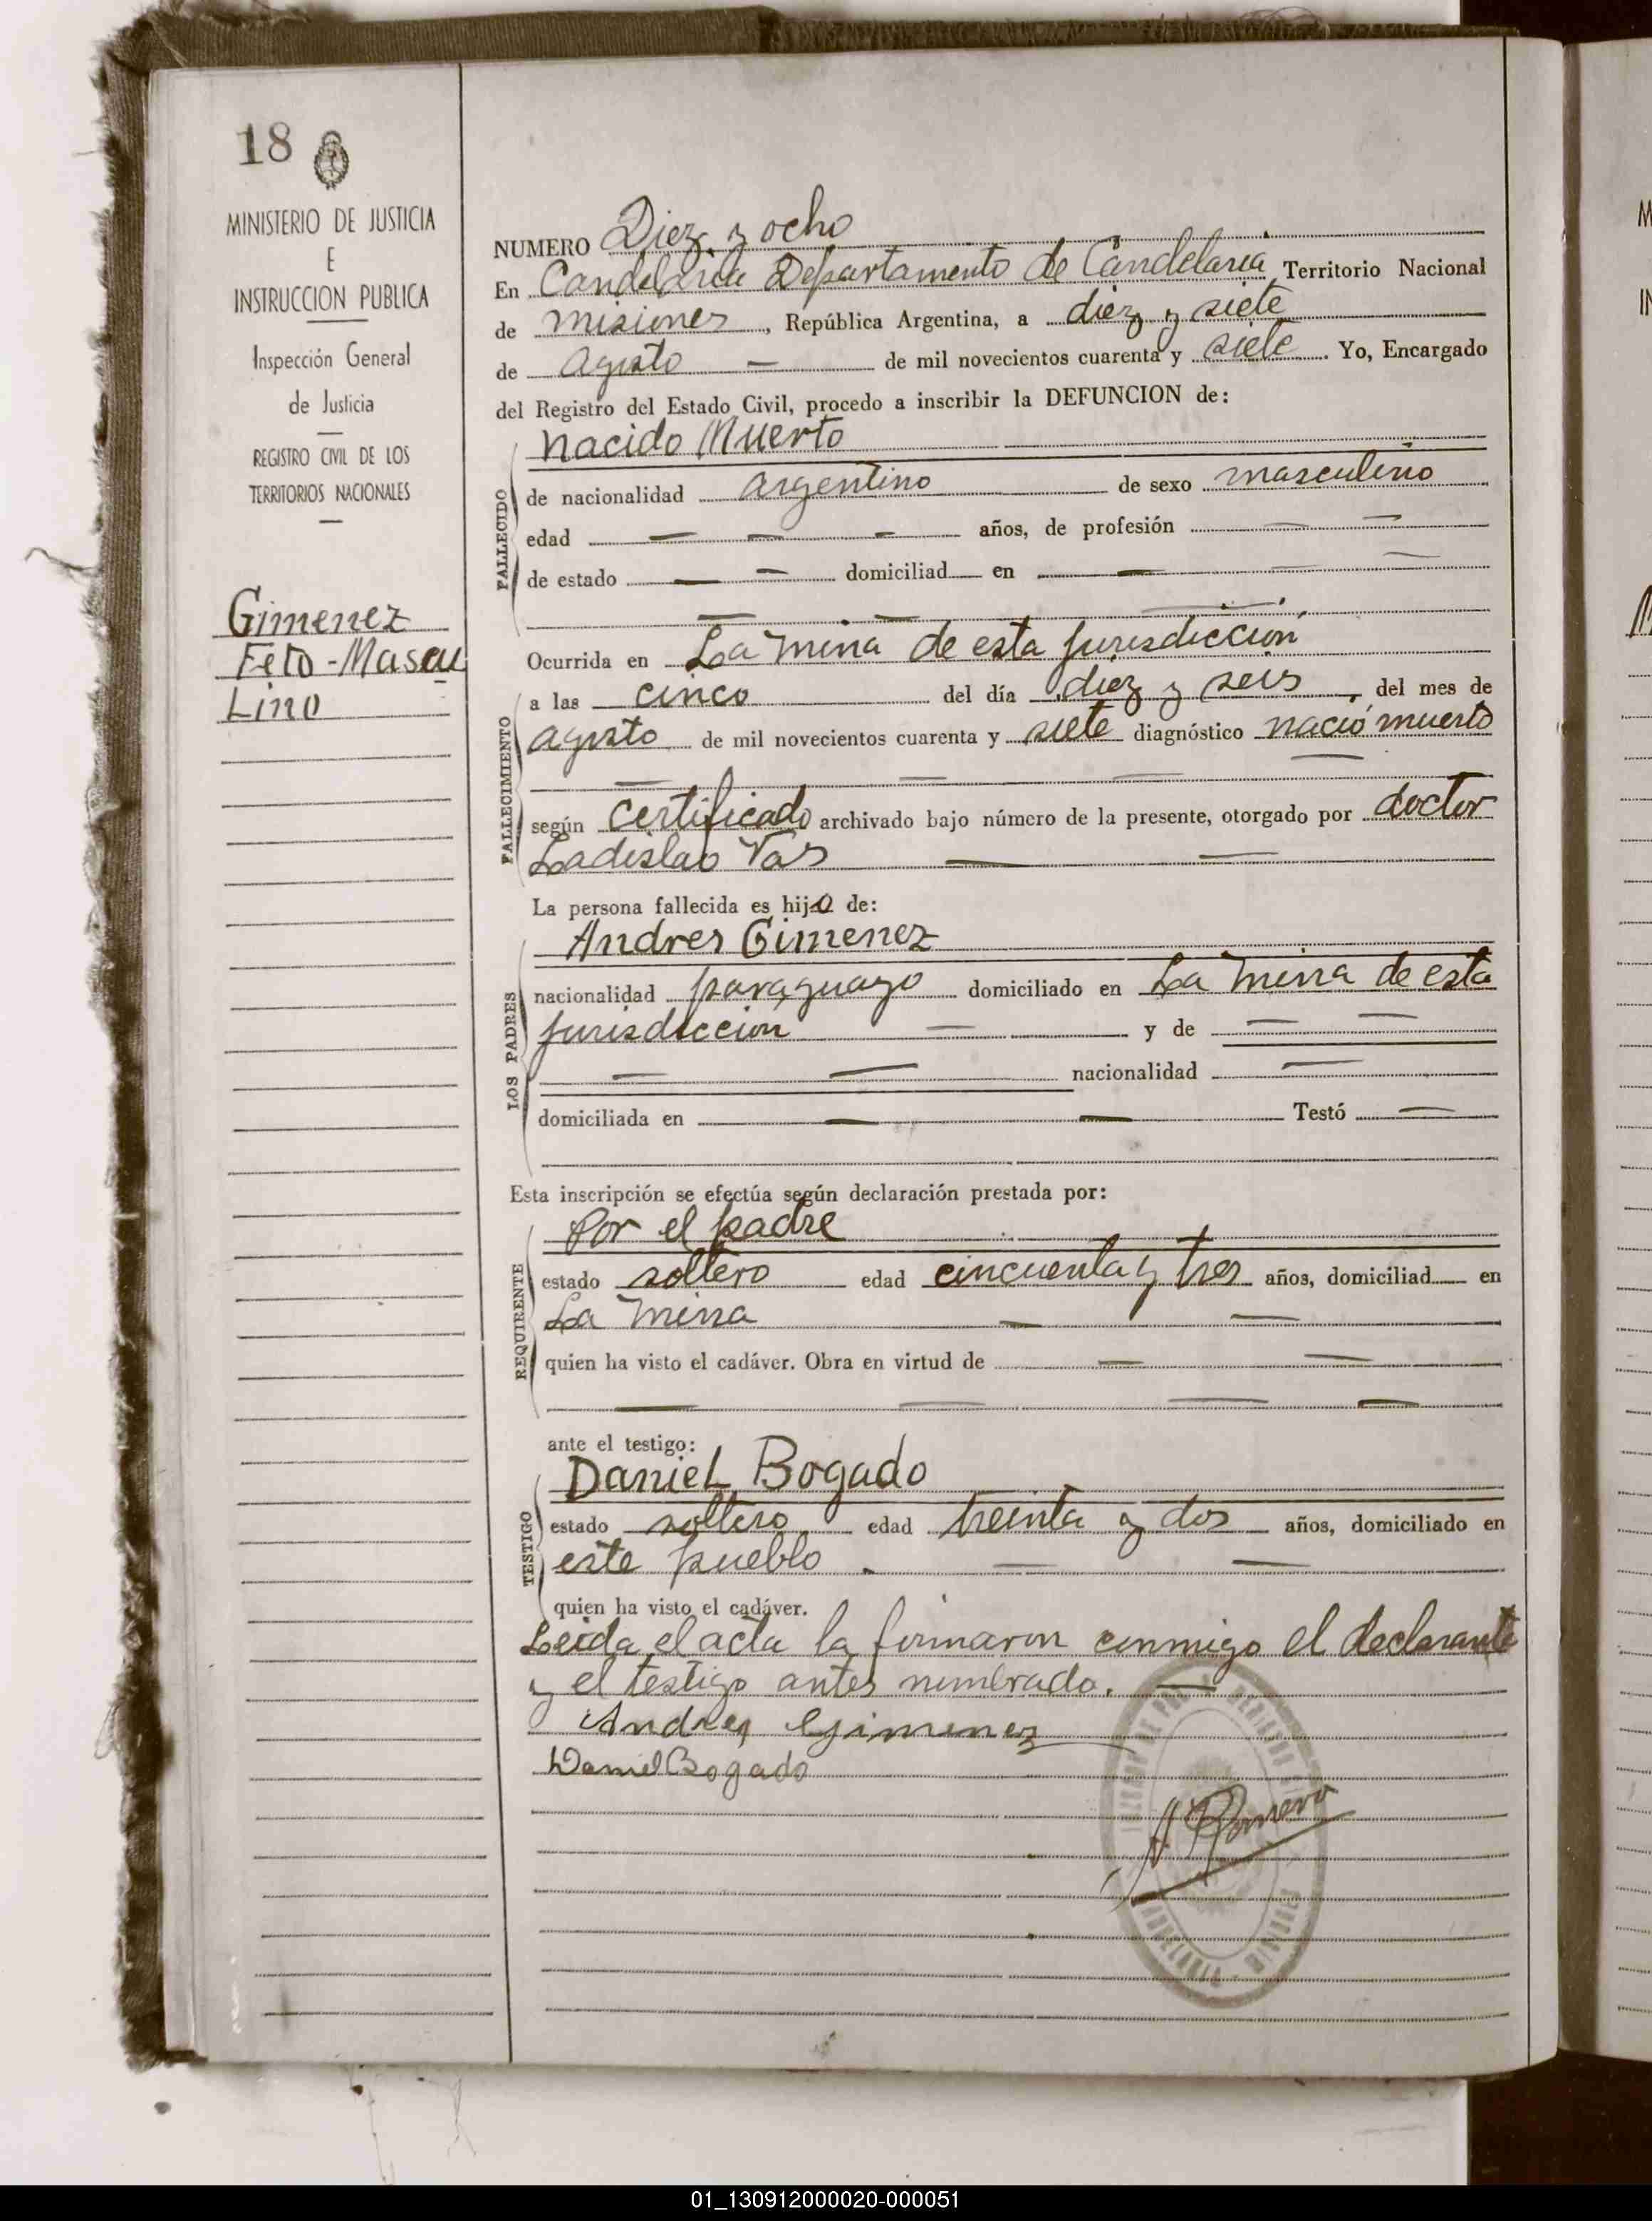 18
MINISTERIO DE JUSTICIA
E
INSTRUCCION PUBLICA
Inspección General
de Justicia
REGISTRO CIVIL DE LOS
TERRITORIOS NACIONALES
Gimenez
Feto-Mascu
Lino
NUMERO Diez y ocho
En Candelaria Departamento de Candelaria Territorio Nacional
de misiones, República Argentina, a diez y siete
de agosto — de mil novecientos cuarenta y siete. Yo, Encargado
del Registro del Estado Civil, procedo a inscribir la DEFUNCION de:
nacido Muerto
FALLECIDO
de nacionalidad argentino de sexo masculino
edad — — — años, de profesión — —
de estado — — domiciliad en — — —
— — —
Ocurrida en La mina de esta jurisdicción
FALLECIMIENTO
a las cinco del día diez y seis, del mes de
agosto de mil novecientos cuarenta y siete diagnóstico nació muerto
— — — —
según certificado archivado bajo número de la presente, otorgado por doctor
Ladislao Vas — —
La persona fallecida es hijo de:
LOS PADRES
Andres Gimenez
nacionalidad paraguayo domiciliado en La mina de esta
jurisdiccion — y de — —
— — nacionalidad —
domiciliada en — — Testó —
Esta inscripción se efectúa según declaración prestada por:
REQUIRENTE
Por el padre
estado soltero edad cincuenta y tres años, domiciliad en
La mina — —
quien ha visto el cadáver. Obra en virtud de — —
— — — —
ante el testigo:
TESTIGO
Daniel Bogado
estado soltero edad treinta y dos años, domiciliado en
este pueblo. — —
quien ha visto el cadáver.
Leida el acta la firmaron conmigo el declarante
y el testigo antes nombrado. —
Andres Gimenez
Daniel Bogado
A. Romero
CANDELARIA - MISIONES
01_130912000020-000051